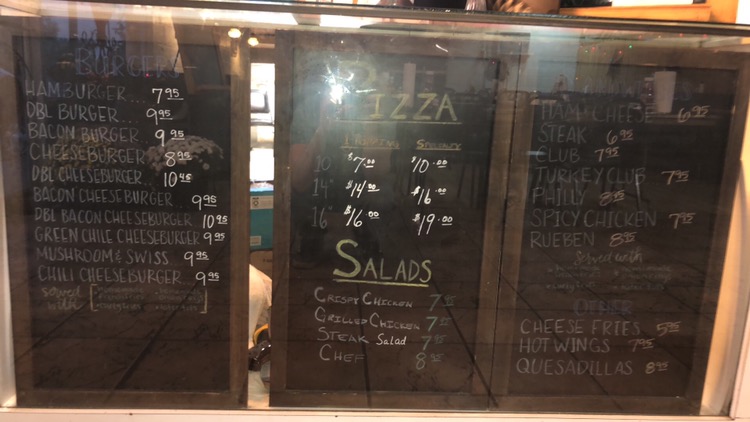 BURGER
HAMBURGER... 7 95
DBL BURGER... 9 95
BACON BURGER... 9 95
CHEESEBURGER... 8 95
DBL CHEESEBURGER... 10 45
BACON CHEESEBURGER... 9 95
DBL BACON CHEESEBURGER 10 95
GREEN CHILE CHEESEBURGER 9 95
MUSHROOM & SWISS 9 95
CHILI CHEESEBURGER... 9 95
served with
PIZZA
1 TOPPING SPECIALTY
10" $7.00 $10.00
14" $14.00 $16.00
16" $16.00 $19.00
SALADS
CRISPY CHICKEN 7 95
GRILLED CHICKEN 7 95
STEAK Salad 7 95
CHEF 8 95
HAM/CHEESE 6 95
STEAK 6 95
CLUB 7 95
TURKEY CLUB 7 95
PHILLY 8 95
SPICY CHICKEN 7 95
RUEBEN 8 95
Served with
OTHER
CHEESE FRIES 5 95
HOT WINGS 7 95
QUESADILLAS 8 95